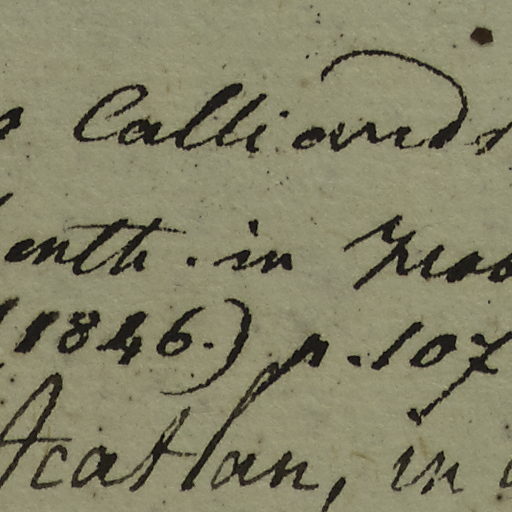 Calliands
Benth. in
(1846.) p. 107
Acatlan, in